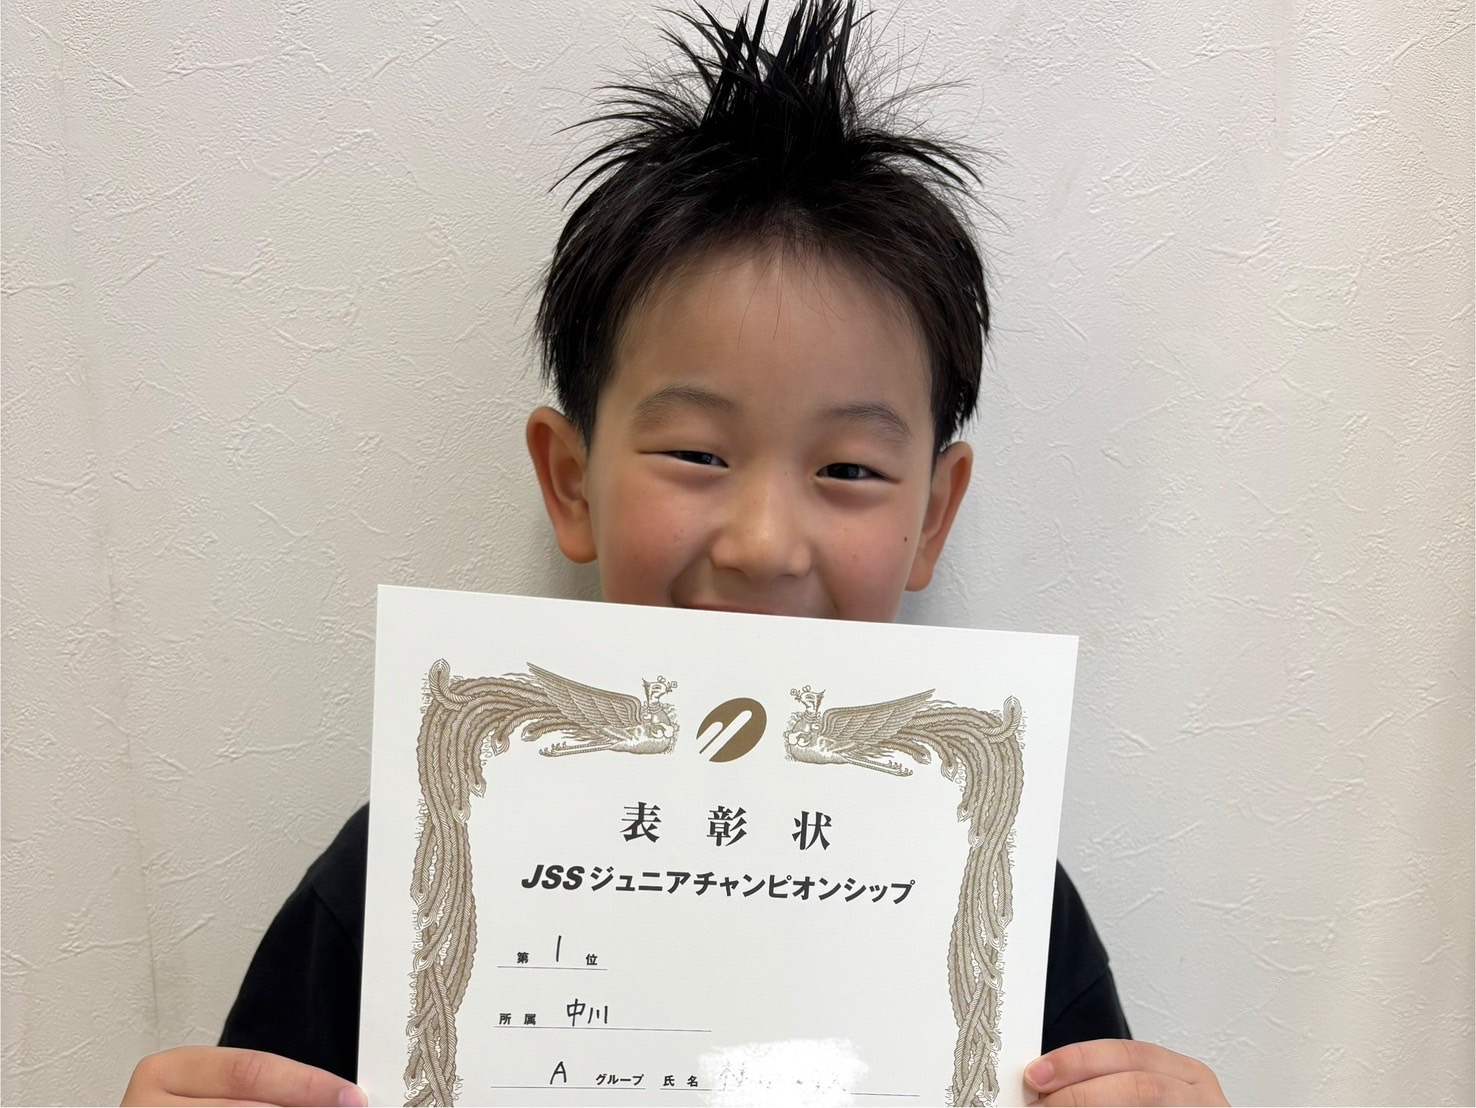 表彰状
JSSジュニアチャンピオンシップ
第 1 位
所属 中川
A グループ 氏名